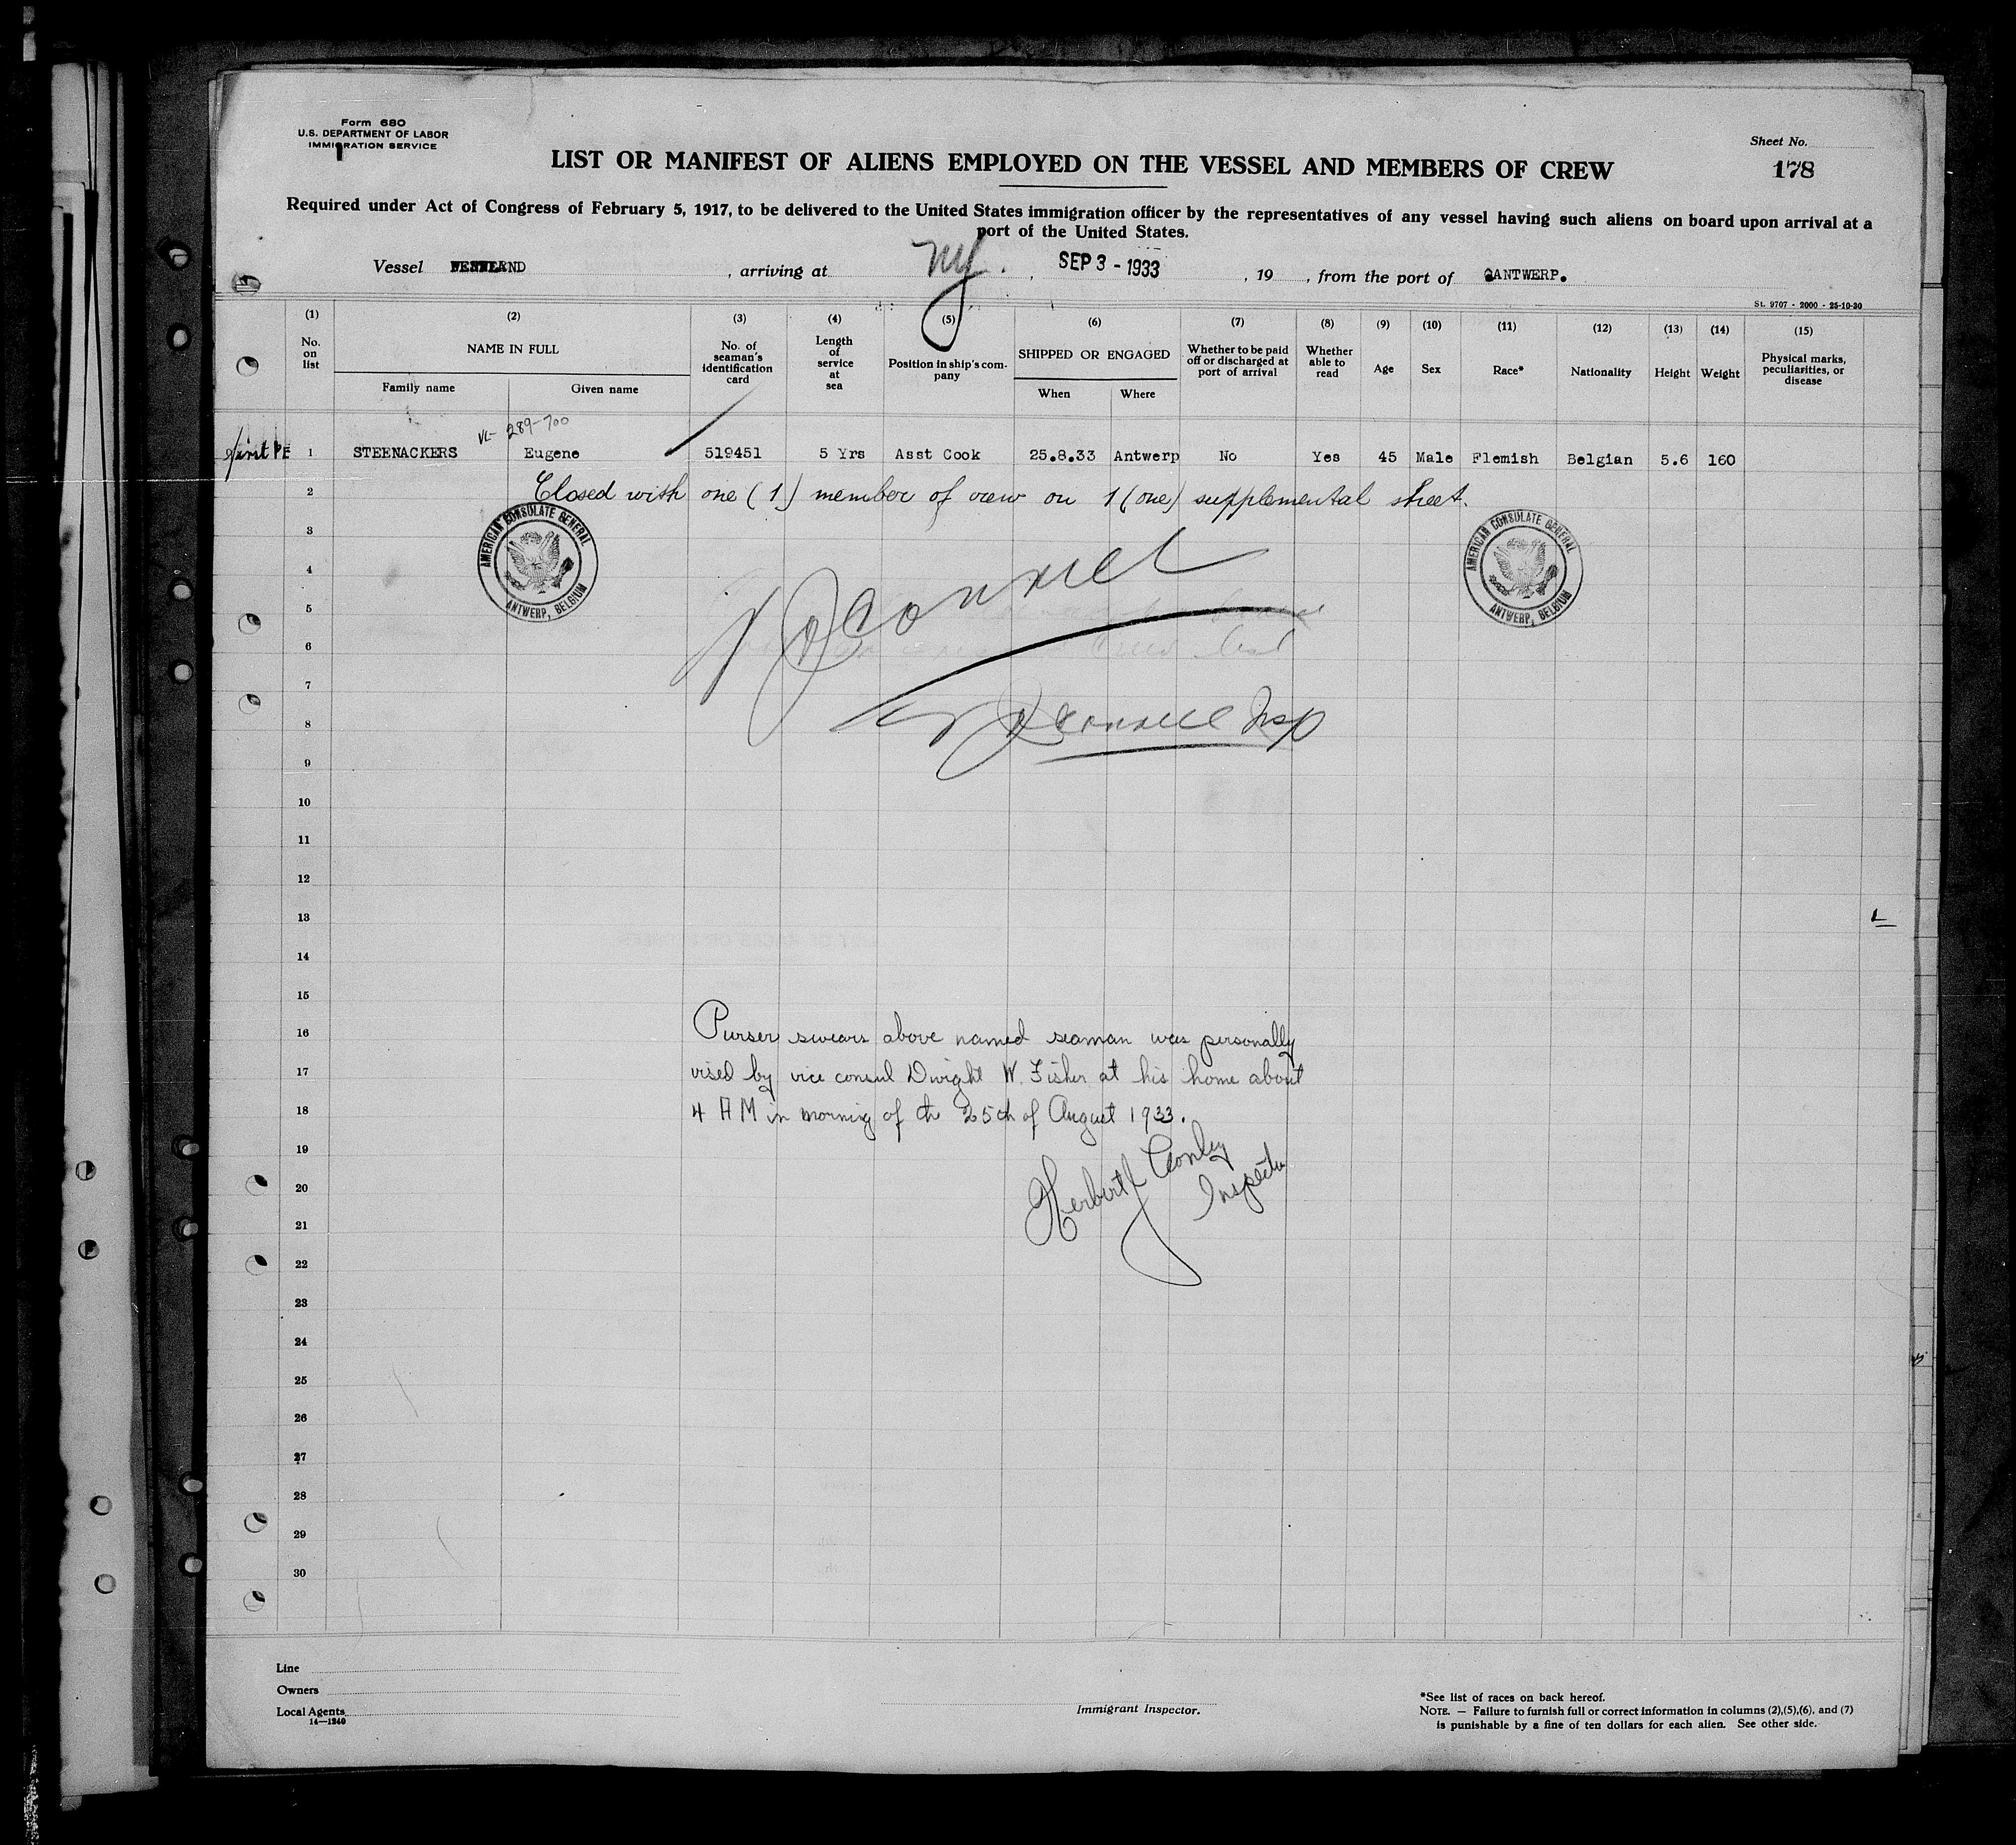 Form 680
U.S. DEPARTMENT OF LABOR
IMMIGRATION SERVICE
Sheet No.
178
LIST OR MANIFEST OF ALIENS EMPLOYED ON THE VESSEL AND MEMBERS OF CREW
Required under Act of Congress of February 5, 1917, to be delivered to the United States immigration officer by the representatives of any vessel having such aliens on board upon arrival at a
port of the United States.
Vessel , arriving at NY. , SEP 3 - 1933 , 19 , from the port of ANTWERP.
St. 9707 - 2000 - 25-10-30
(1) (2) (3) (4) (5) (6) (7) (8) (9) (10) (11) (12) (13) (14) (15)
No. on list
NAME IN FULL
Family name Given name
No. of seaman's identification card
Length of service at sea
Position in ship's com-pany
SHIPPED OR ENGAGED
When Where
Whether to be paid off or discharged at port of arrival
Whether able to read
Age
Sex
Race*
Nationality
Height
Weight
Physical marks, peculiarities, or disease
289-700
first PE 1 STEENACKERS Eugene 519451 5 Yrs Asst Cook 25.8.33 Antwerp No Yes 45 Male Flemish Belgian 5.6 160
2 Closed with one (1) member of crew on 1 (one) supplemental sheet.
AMERICAN CONSULATE GENERAL
ANTWERP, BELGIUM
AMERICAN CONSULATE GENERAL
ANTWERP, BELGIUM
3
4
5
6
7
8 Insp
9
10
11
12
13
14
15
16 Purser swears above named seaman was personally
17 vised by vice consul Dwight W. Fisher at his home about
18 4 AM in morning of th 25th of August 1933.
19 Herbert Conley
20 Inspector
21
22
23
24
25
26
27
28
29
30
Line
Owners
Local Agents
14—1240
Immigrant Inspector.
*See list of races on back hereof.
NOTE. — Failure to furnish full or correct information in columns (2),(5),(6), and (7)
is punishable by a fine of ten dollars for each alien. See other side.